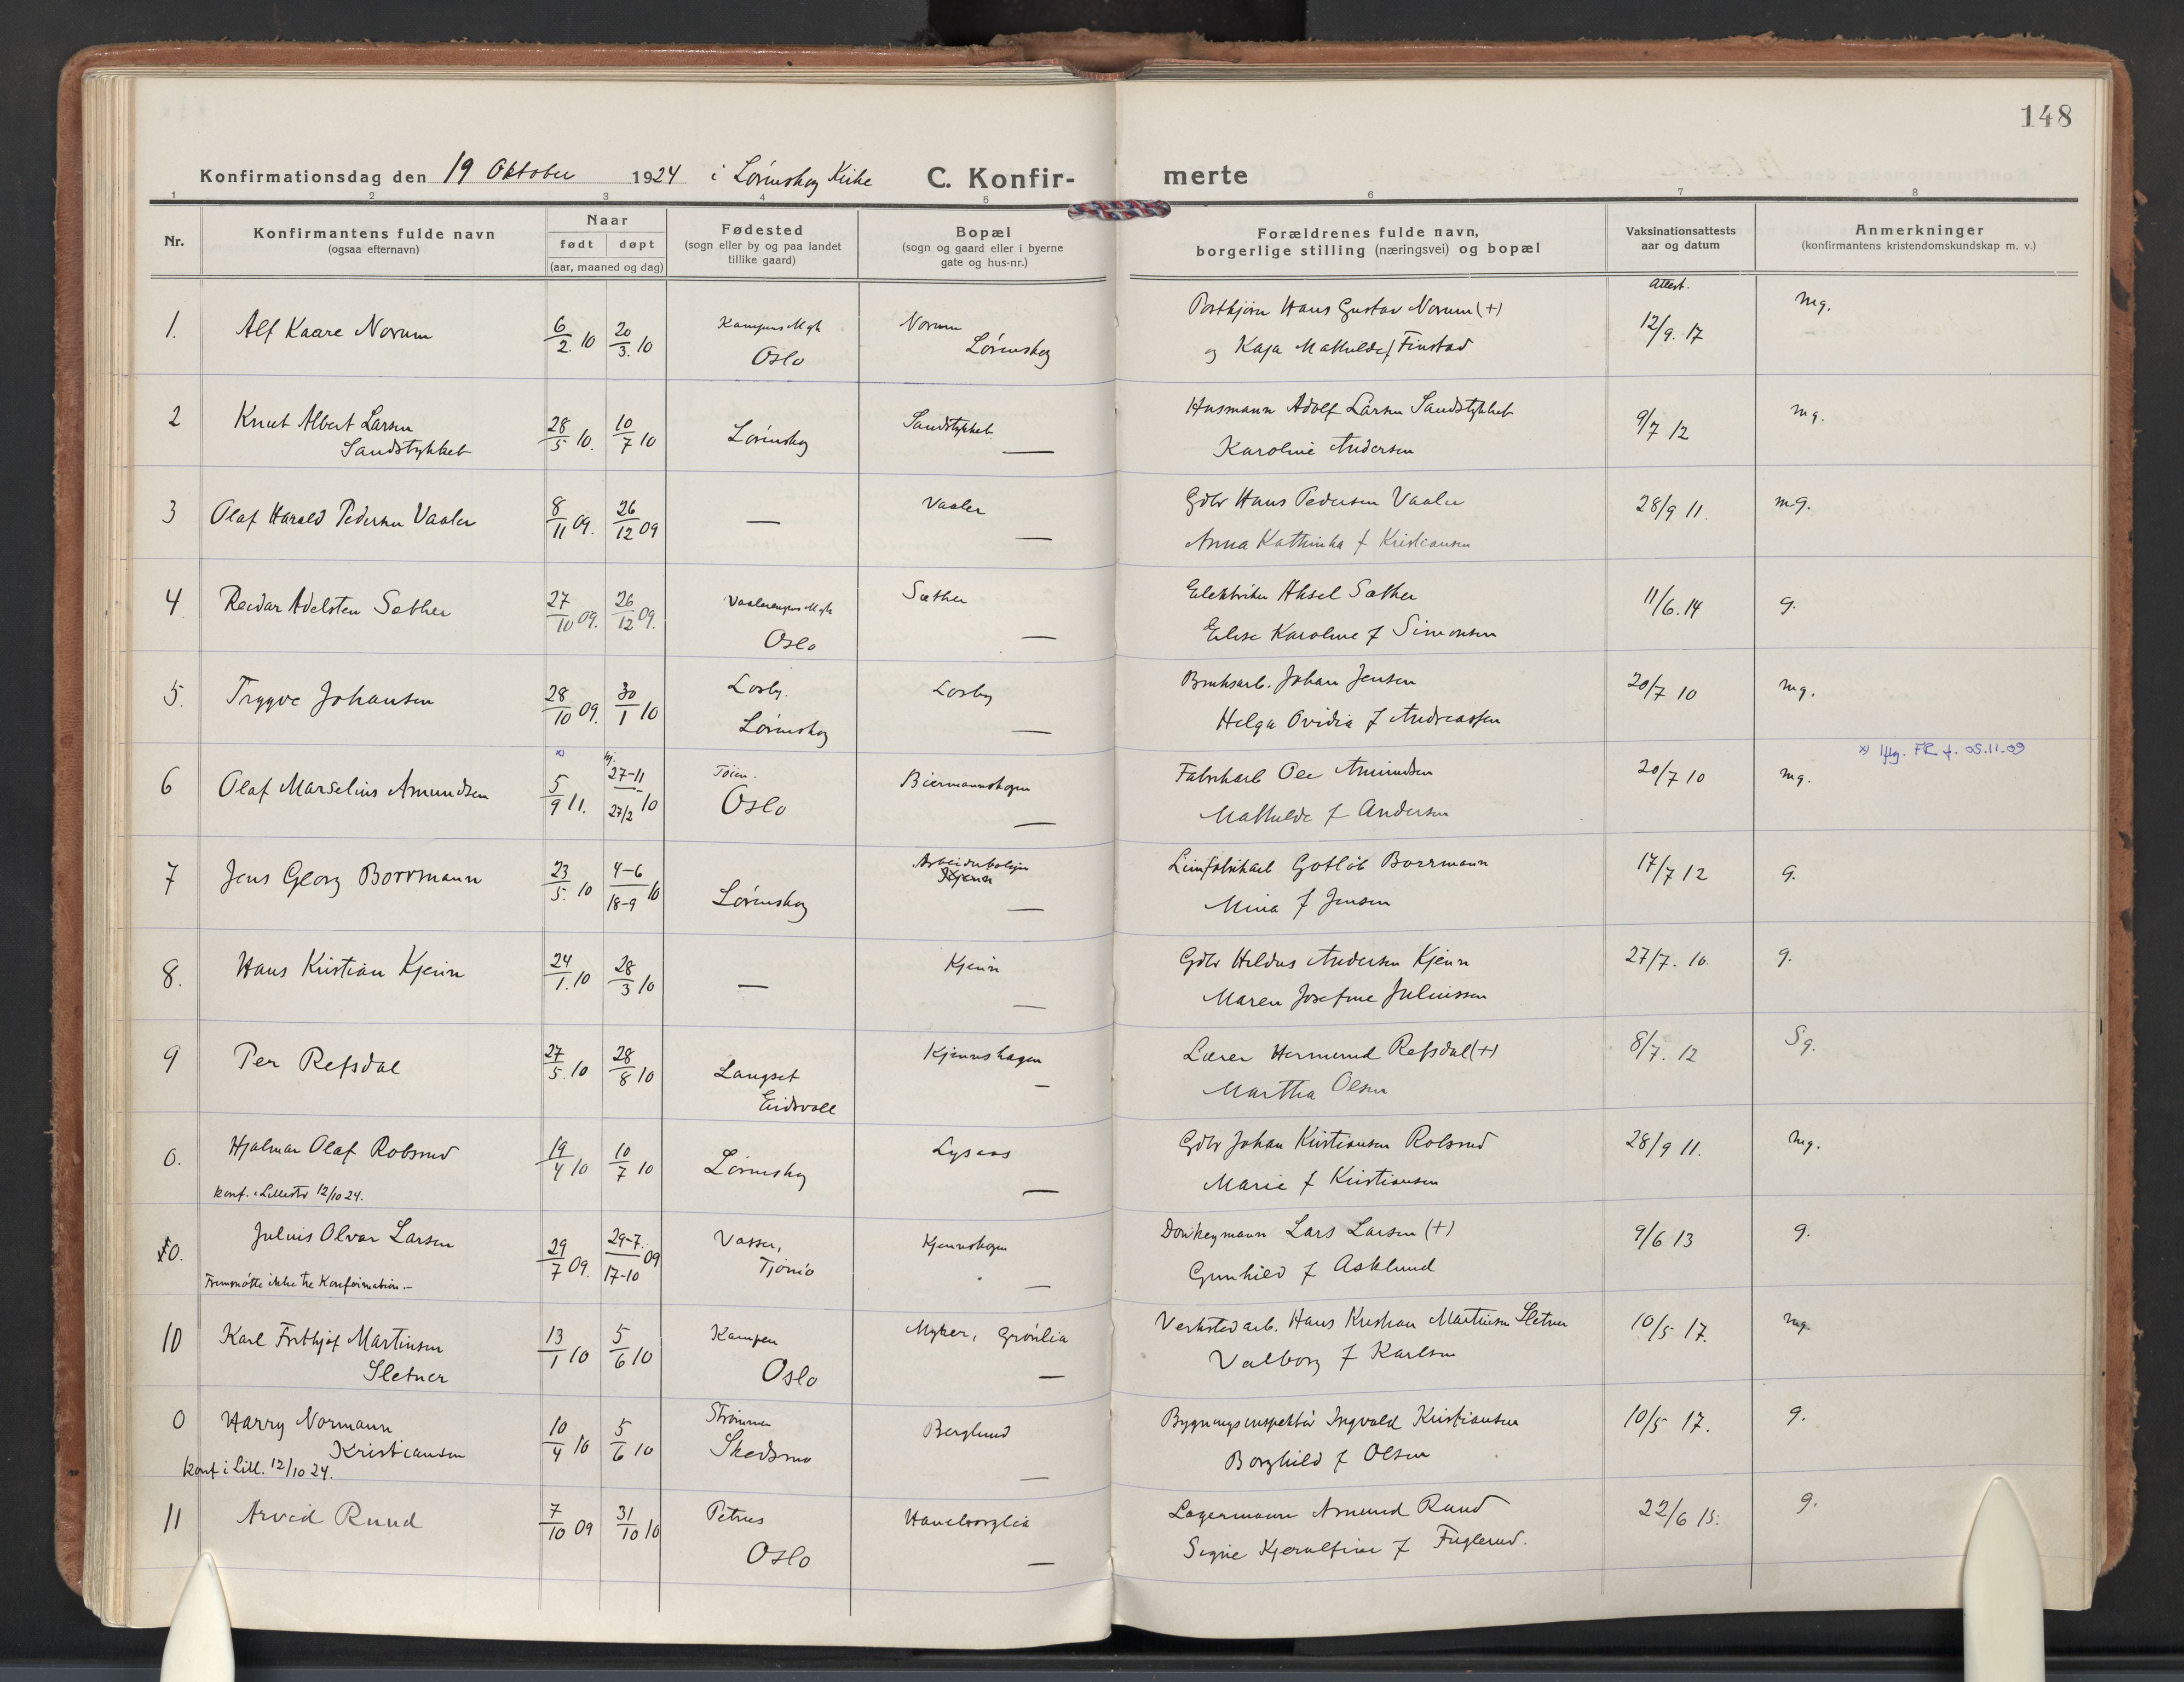 148
Konfirmationsdag den 19 Oktober 1924 i Lørenskog Kirke C. Konfir- merte
1 2 3 4 5 6 7 8
Nr.
Konfirmantens fulde navn
(ogsaa efternavn)
Naar
født døpt
(aar, maaned og dag)
Fødested
(sogn eller by og paa landet
tillike gaard)
Bopæl
(sogn og gaard eller i byerne
gate og hus-nr.)
Forældrenes fulde navn,
borgerlige stilling (næringsvei) og bopæl
Vaksinationsattests
aar og datum
Anmerkninger
(konfirmantens kristendomskundskap m. v.)
1. Alf Kaare Norum 6/2. 10 20/3. 10 Kampens Mgh Norum Hans Gustav Norum (+) Attest. mg.
Oslo Lørenskog og Kaja Mathilde f Finstad 12/9. 17
2 Knut Albert Larsen 28/5 10. 10/7 10 Lørenskog Sandstykket Husmann Adolf Larsen Sandstykket 9/7 12 mg.
Sandstykket — Karoline Andersen
3 Olaf Harald Pedersen Vaaler 8/11 09. 26/12 09 — Vaaler Gdbr Hans Pedersen Vaaler 28/9 11. mg.
— Anna Kathinka f Kristiansen
4 Reidar Adelsten Sæther 27/10 09. 26/12 09. Vaalerengens Mgh Sæther Elektriker Aksel Sæther 11/6. 14 g.
Oslo — Elise Karoline f Simonsen
5. Trygve Johansen 28/10 09. 30/1 10 Losby. Losby Bruksarb. Johan Jensen 20/7 10 mg.
Lørenskog — Helga Ovidia f Andreassen
x) x) Iflg. FR f. 05.11.09
6 Olaf Marselius Amundsen 5/9 11. hj. 27-11 27/2 10 Tøien. Biermannskogen Fabrikarb Ole Amundsen 20/7 10 mg.
Oslo — Mathilde f Andersen
7 Jens Georg Borrmann 23/5. 10 4-6 18-9 10 Lørenskog Arbeiderbolign Limfabrikarb Gotlob Borrmann 17/7 12 g.
Kjenn — Mina f Jensen
8. Hans Kristian Kjenn 24/1. 10 28/3 10 — Kjenn Gdbr Hildus Andersen Kjenn 27/7. 10. g.
— Maren Josefine Juliussen
9 Per Refsdal 27/5. 10 28/8 10 Langset Kjennshagen Lærer Hermund Refsdal (+) 8/7. 12 Sg.
Eidsvoll — Martha Olsen
0. Hjalmar Olaf Robsrud 19/4 10 10/7 10 Lørenskog Lysaas Gdbr Johan Kristiansen Robsrud 28/9 11. mg.
konf. i Lillestr 12/10 24. — Marie f Kristiansen
10. Julius Olvar Larsen 29/7 09. 29-7. 17-10 09 Vasser, Kjennshagen Donkeymann Lars Larsen (+) 9/6 13 g.
Fremmøtte ikke til Konfirmation.- Tjømø — Gunhild f Asklund
10 Karl Frithjof Martinsen 13/1 10 5/6 10 Kampen Myrer, Grønlia Verkstedarb. Hans Kristian Martinsen Sletner 10/5 17. mg.
Sletner Oslo — Valborg f Karlsen
0 Harry Normann 10/4 10 5/6 10 Strømmen Berglund Bygningsinspektør Ingvald Kristiansen 10/5 17. g.
Kristiansen Skedsmo — Borghild f Olsen
konf i Lill. 12/10 24.
11 Arvid Ruud 7/10 09 31/10 10 Petrus Haneborglia Lagermann Amund Ruud 22/6 15. g.
Oslo — Signe f Fuglerud.